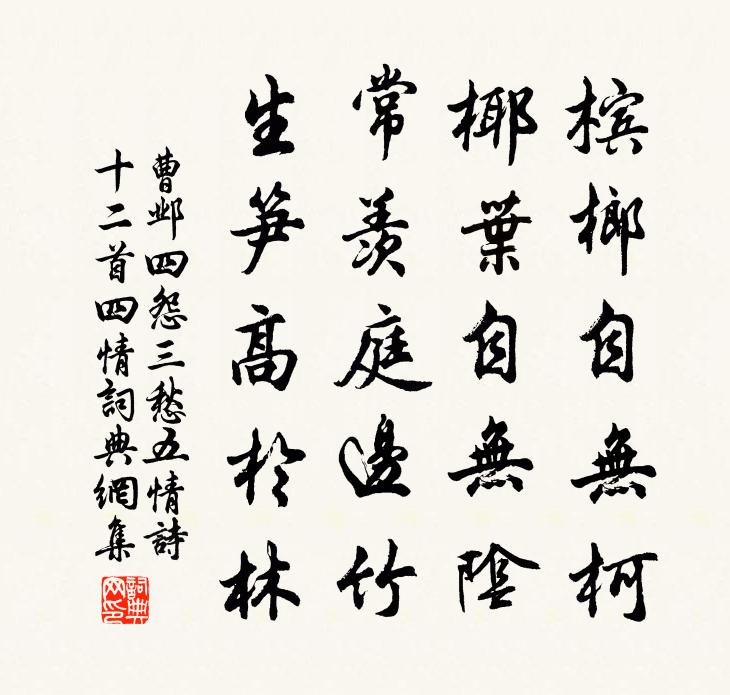 檳榔自無柯
椰葉自無陰
常羨庭邊竹
生笋高於林
曹鄴四怨三愁五情詩
十二首四情詞典網集
詞典
网印